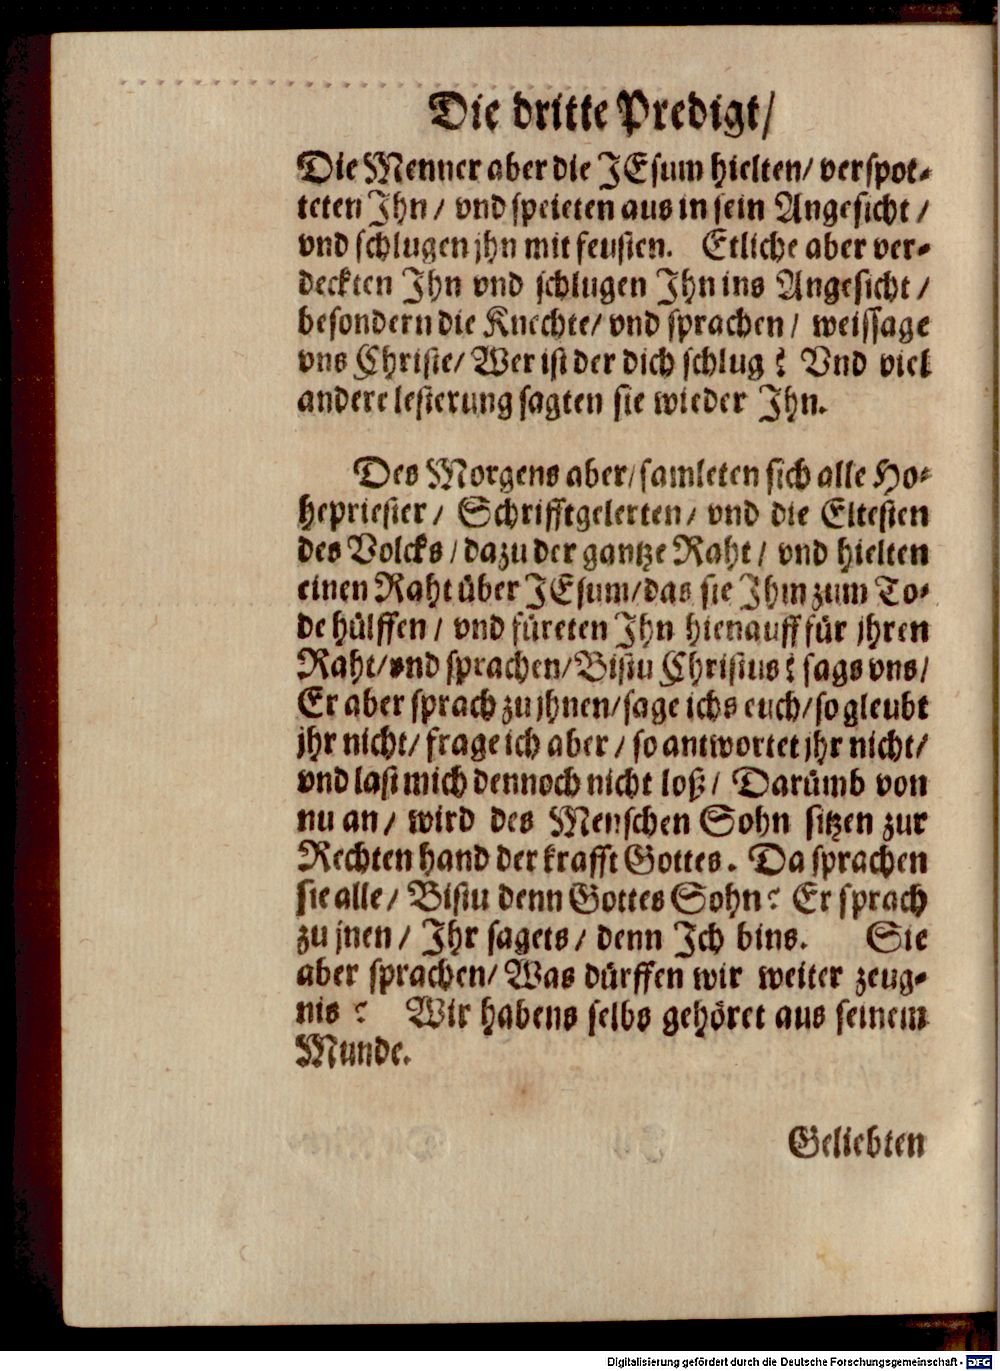 Die dritte Predigt/
Die Menner aber die JEsum hielten/ verspot-
teten Ihn / vnd speieten aus in sein Angesicht /
vnd schlugen jhn mit feusten. Etliche aber ver-
deckten Ihn vnd schlugen Ihn ins Angesicht /
besondern die Knechte/ vnd sprachen / weissage
vns Christe/ Wer ist der dich schlug? Vnd viel
andere lesterung sagten sie wieder Ihn.
Des Morgens aber/ samleten sich alle Ho-
hepriester / Schrifftgelerten / vnd die Eltesten
des Volcks / dazu der gantze Raht / vnd hielten
einen Raht über JEsum/das sie Ihm zum To-
de hülffen / vnd füreten Ihn hienauff für jhren
Raht/vnd sprachen/Bistu Christus? sags vns/
Er aber sprach zu jhnen/sage ichs euch/so gleubt
jhr nicht/ frage ich aber / so antwortet jhr nicht/
vnd last mich dennoch nicht loß / Darümb von
nu an / wird des Menschen Sohn sitzen zur
Rechten hand der krafft Gottes. Da sprachen
sie alle / Bistu denn Gottes Sohn? Er sprach
zu jnen / Ihr sagets / denn Ich bins. Sie
aber sprachen/ Was dürffen wir weiter zeug-
nis? Wir habens selbs gehöret aus seinem
Munde.
Geliebten
Digitalisierung gefördert durch die Deutsche Forschungsgemeinschaft - DFG